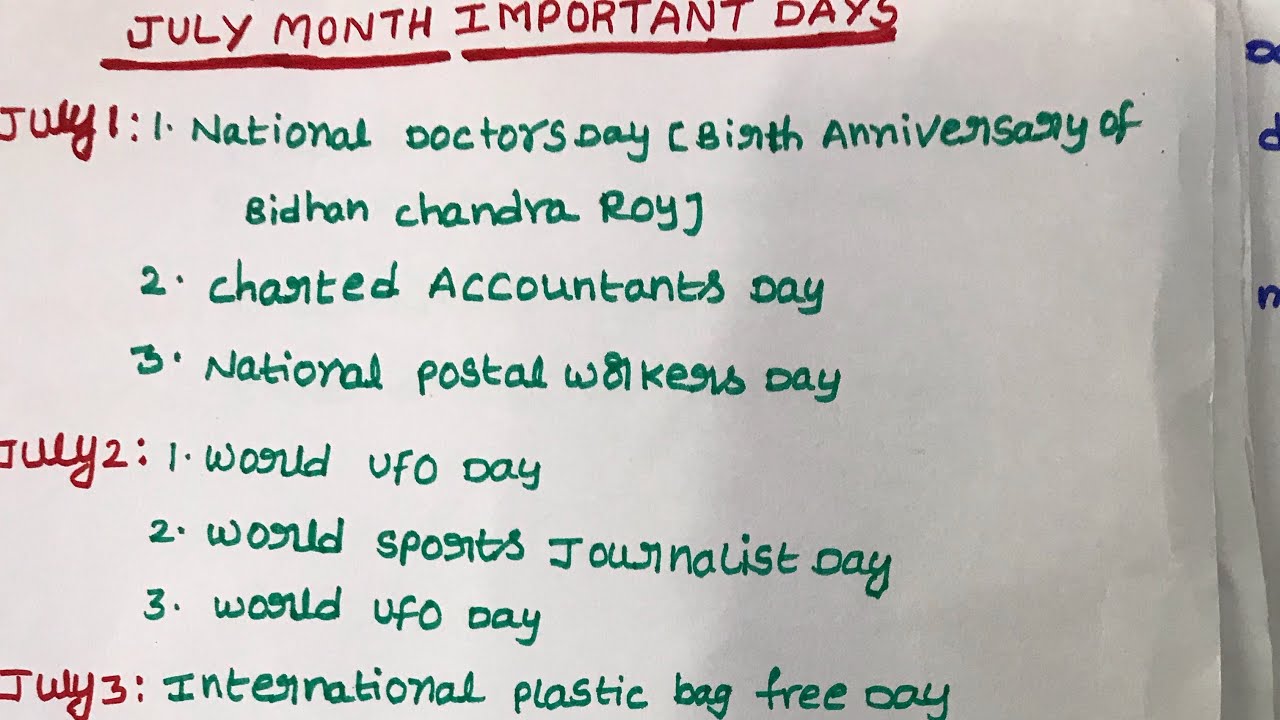 JULY MONTH IMPORTANT DAYS
July 1: 1. National Doctors Day [Birth Anniversary of
Bidhan Chandra Roy]
2. Charted Accountants Day
3. National postal workers Day
July 2: 1. World UFO Day
2. World sports Journalist Day
3. World UFO Day
July 3: International plastic bag free Day